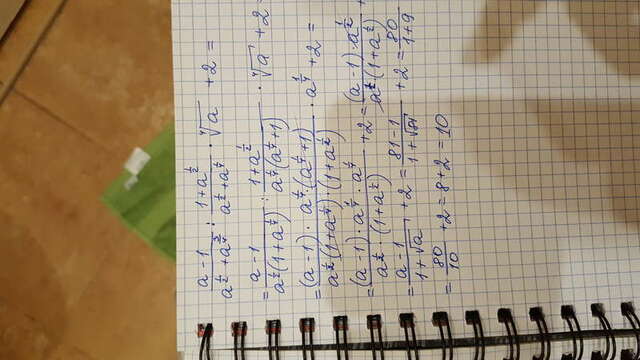 (a - 1)/(a^(1/2) + a^(3/4)) : (1 + a^(1/2))/(a^(1/2) + a^(1/4)) · ∜a + 2 =
= (a - 1)/(a^(1/2)(1 + a^(1/4))) : (1 + a^(1/2))/(a^(1/4)(a^(1/4) + 1)) · ∜a + 2 =
= ((a - 1) · a^(1/4) · (a^(1/4) + 1))/(a^(1/2)(1 + a^(1/4)) · (1 + a^(1/2))) · a^(1/4) + 2 =
= ((a - 1) · a^(1/4) · a^(1/4))/(a^(1/2) · (1 + a^(1/2))) + 2 = ((a - 1) · a^(1/2))/(a^(1/2)(1 + a^(1/2))) +
= (a - 1)/(1 + √a) + 2 = (81 - 1)/(1 + √81) + 2 = 80/(1 + 9)
= 80/10 + 2 = 8 + 2 = 10